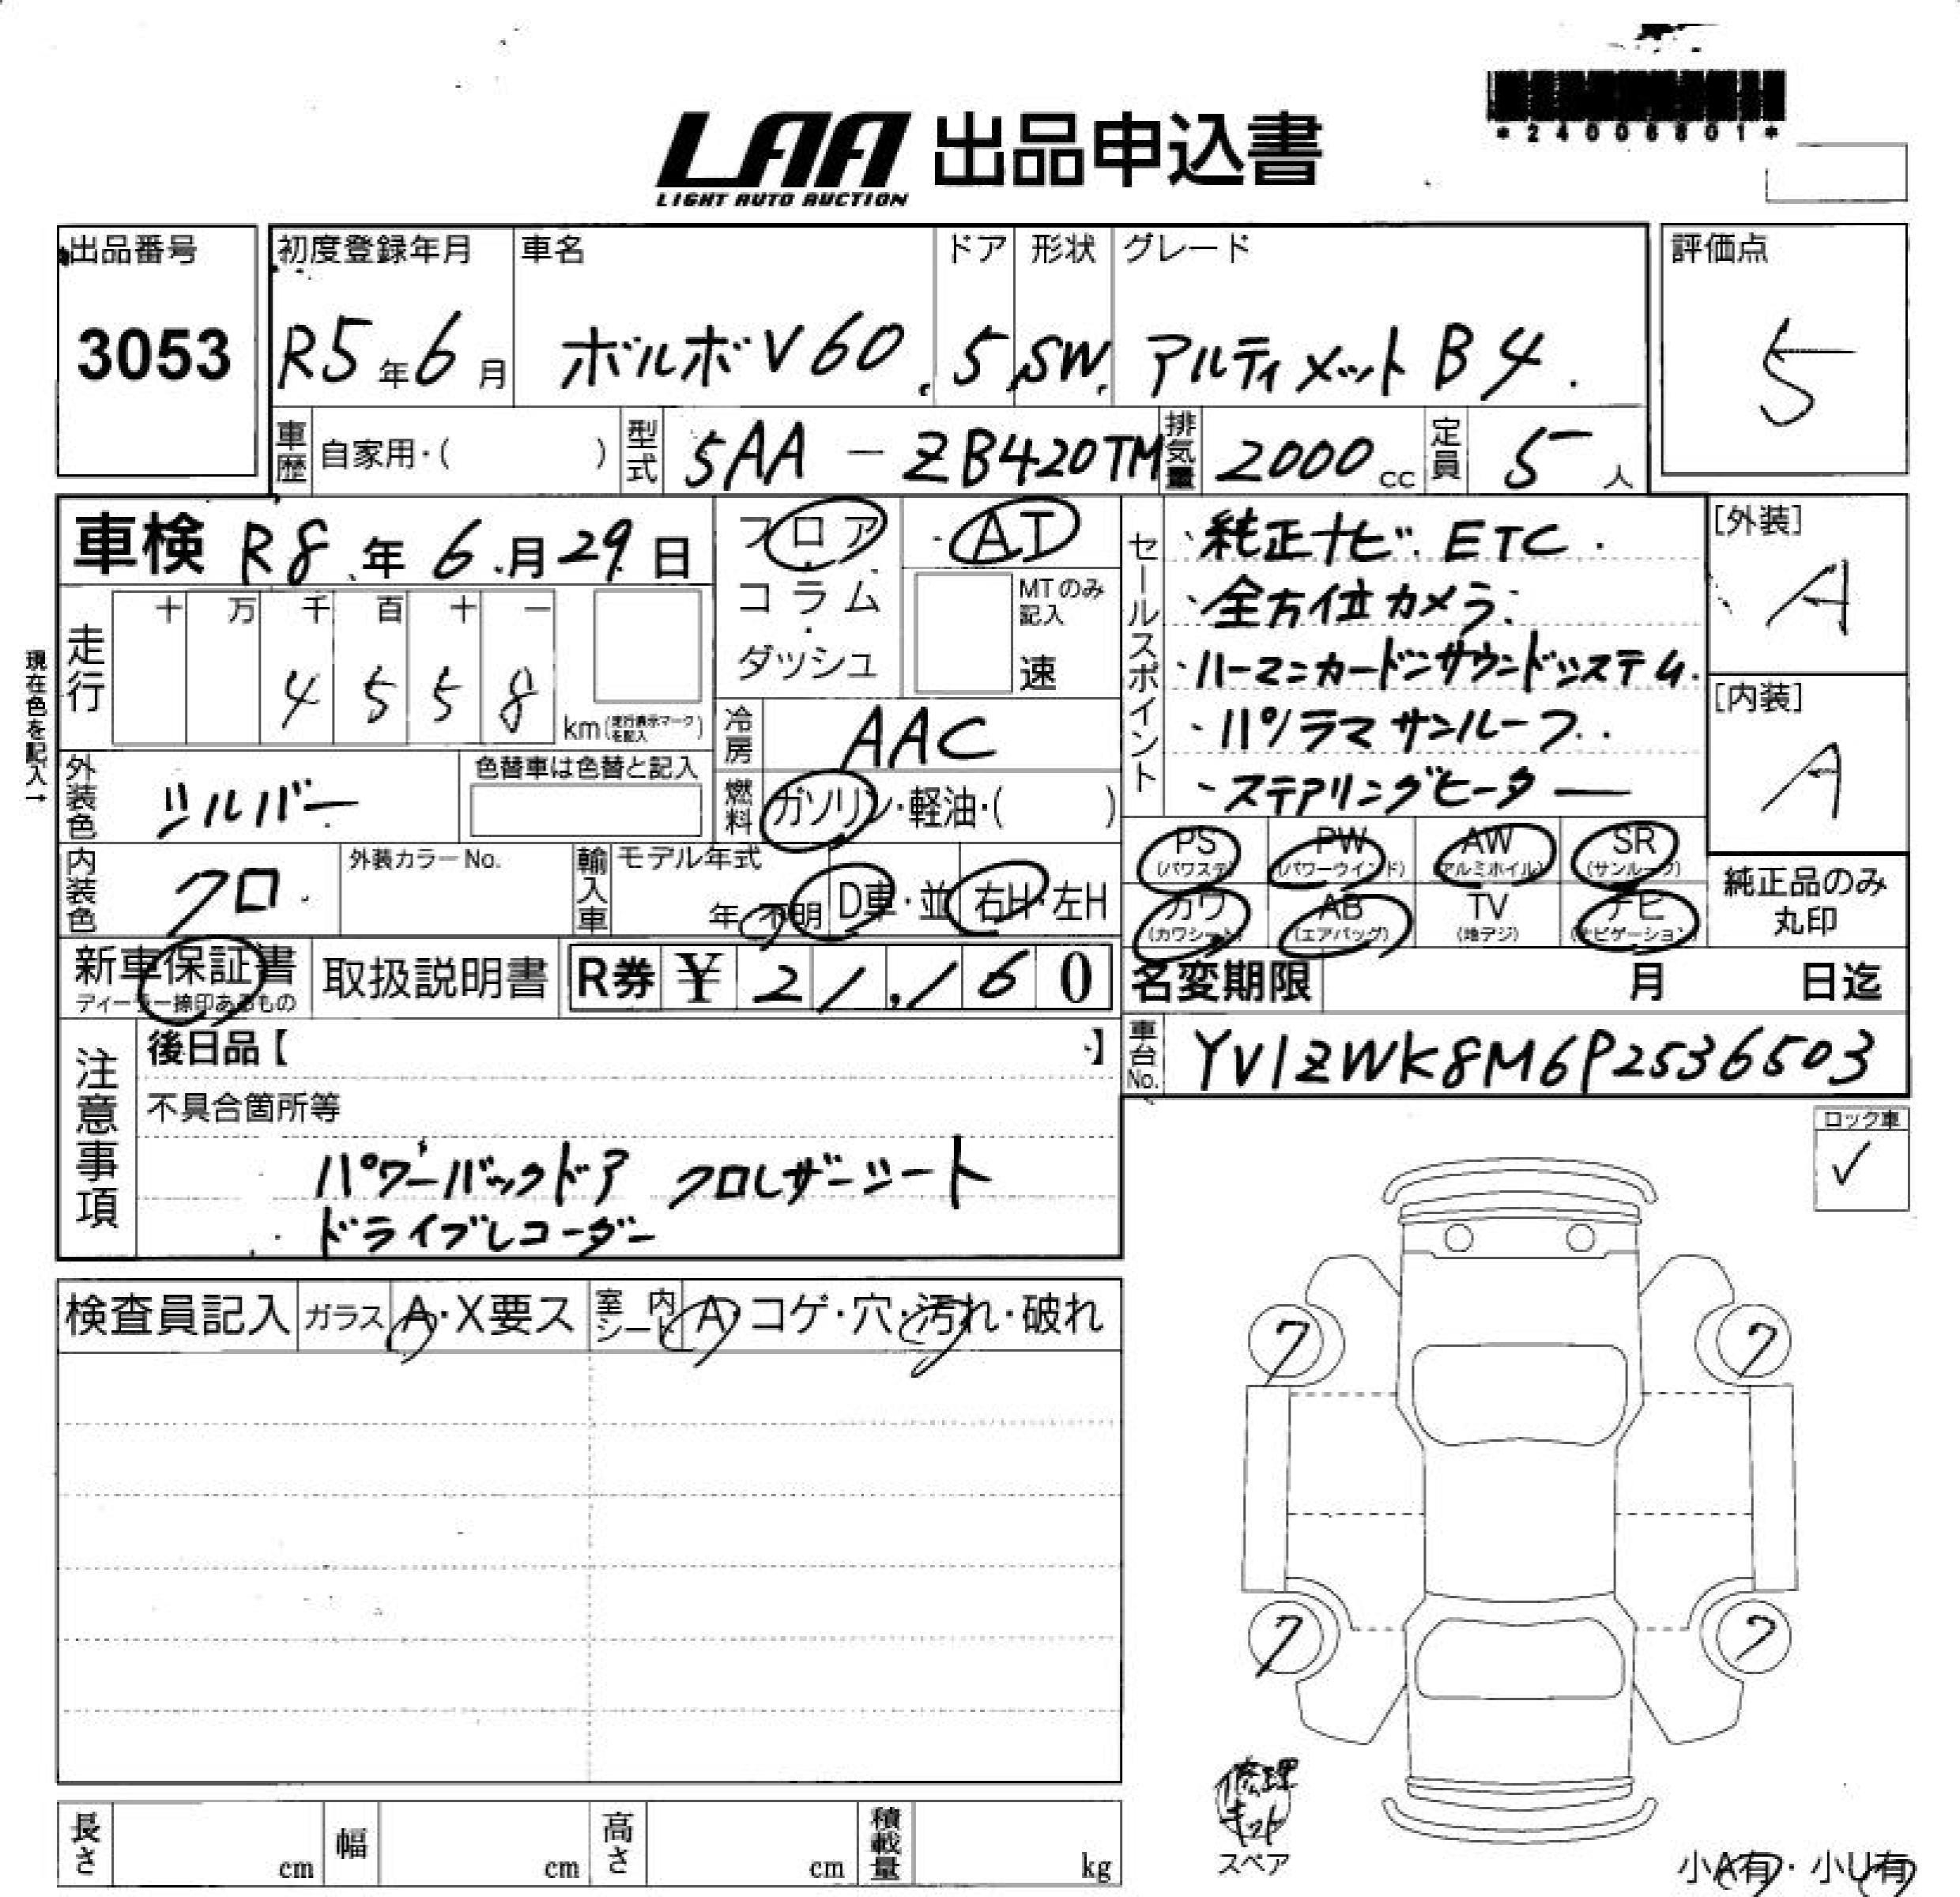 *24006801*
LAA 出品申込書
LIGHT AUTO AUCTION
出品番号
3053
初度登録年月
R5年6月
車名
ボルボV60
ドア
5
形状
SW
グレード
アルティメットB4
評価点
5
車歴
自家用・( )
型式
5AA-ZB420TM
排気量
2000cc
定員
5人
車検 R8年6月29日
現在色を記入→
走行
十 万 千 百 十 一
4 5 5 8
km(走行表示マークを記入)
フロア
・
コラム
・
ダッシュ
AT
MTのみ記入
速
冷房
AAC
燃料
ガソリン・軽油・( )
外装色
シルバー
色替車は色替と記入
内装色
クロ
外装カラーNo.
輸入車
モデル年式
年・不明
D車・並
右H・左H
新車保証書
ディーラー捺印あるもの
取扱説明書
R券 ¥21,160
セールスポイント
・純正ナビ ETC
・全方位カメラ
・ハーマンカードンサウンドシステム
・パノラマサンルーフ
・ステアリングヒーター
[外装]
A
[内装]
A
PS (パワステ)
PW (パワーウインド)
AW (アルミホイル)
SR (サンルーフ)
カワ (カワシート)
AB (エアバッグ)
TV (地デジ)
ナビ (ナビゲーション)
純正品のみ
丸印
名変期限 月 日迄
車台No.
YV1ZWK8M6P2536503
注意事項
後日品【 】
不具合箇所等
パワーバックドア クロレザーシート
ドライブレコーダー
ロック車
✓
検査員記入
ガラス A・X要ス
室内シート A・コゲ・穴・汚れ・破れ
7
7
7
7
修理
キット
スペア
小A有・小U有
長さ cm
幅 cm
高さ cm
積載量 kg